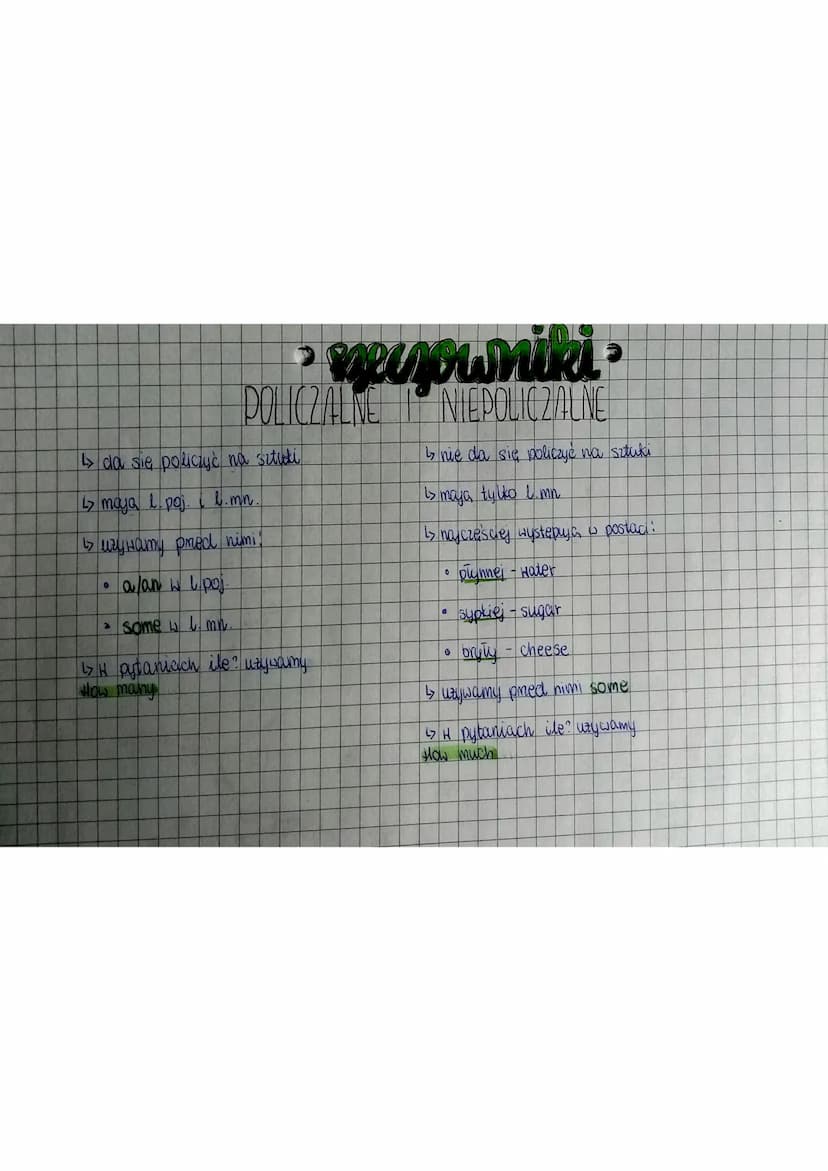 rzeczowniki
POLICZALNE I NIEPOLICZALNE
↳ da się policzyć na sztuki
↳ mają l. poj. i l. mn.
↳ używamy przed nimi:
• a/an w l. poj.
• some w l. mn.
↳ w pytaniach ile? używamy
How many
↳ nie da się policzyć na sztuki
↳ mają tylko l. mn
↳ najczęściej występują w postaci:
• płynnej - water
• sypkiej - sugar
• bryły - cheese
↳ używamy przed nimi some
↳ w pytaniach ile? używamy
How much